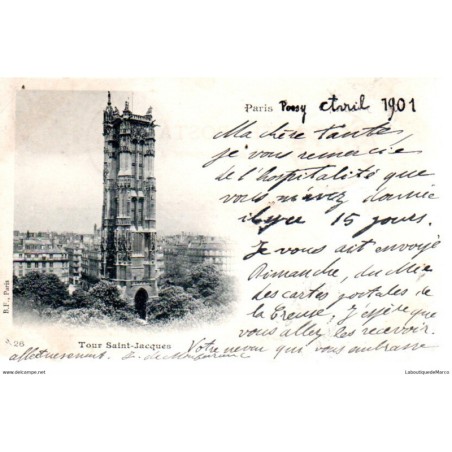 Paris Poesy Avril 1901
Ma chère tante,
je vous remercie
de l'hospitalité que
vous m'avez donnée
il y a 15 jours.
Je vous ait envoyé
Dimanche, du
des cartes postales de
la Creuse, j'espère que
vous allez les recevoir.
Votre neveu qui vous embrasse
affectueusement.
B.F., Paris
26
Tour Saint-Jacques
www.delcampe.net
LaboutiquedeMarco